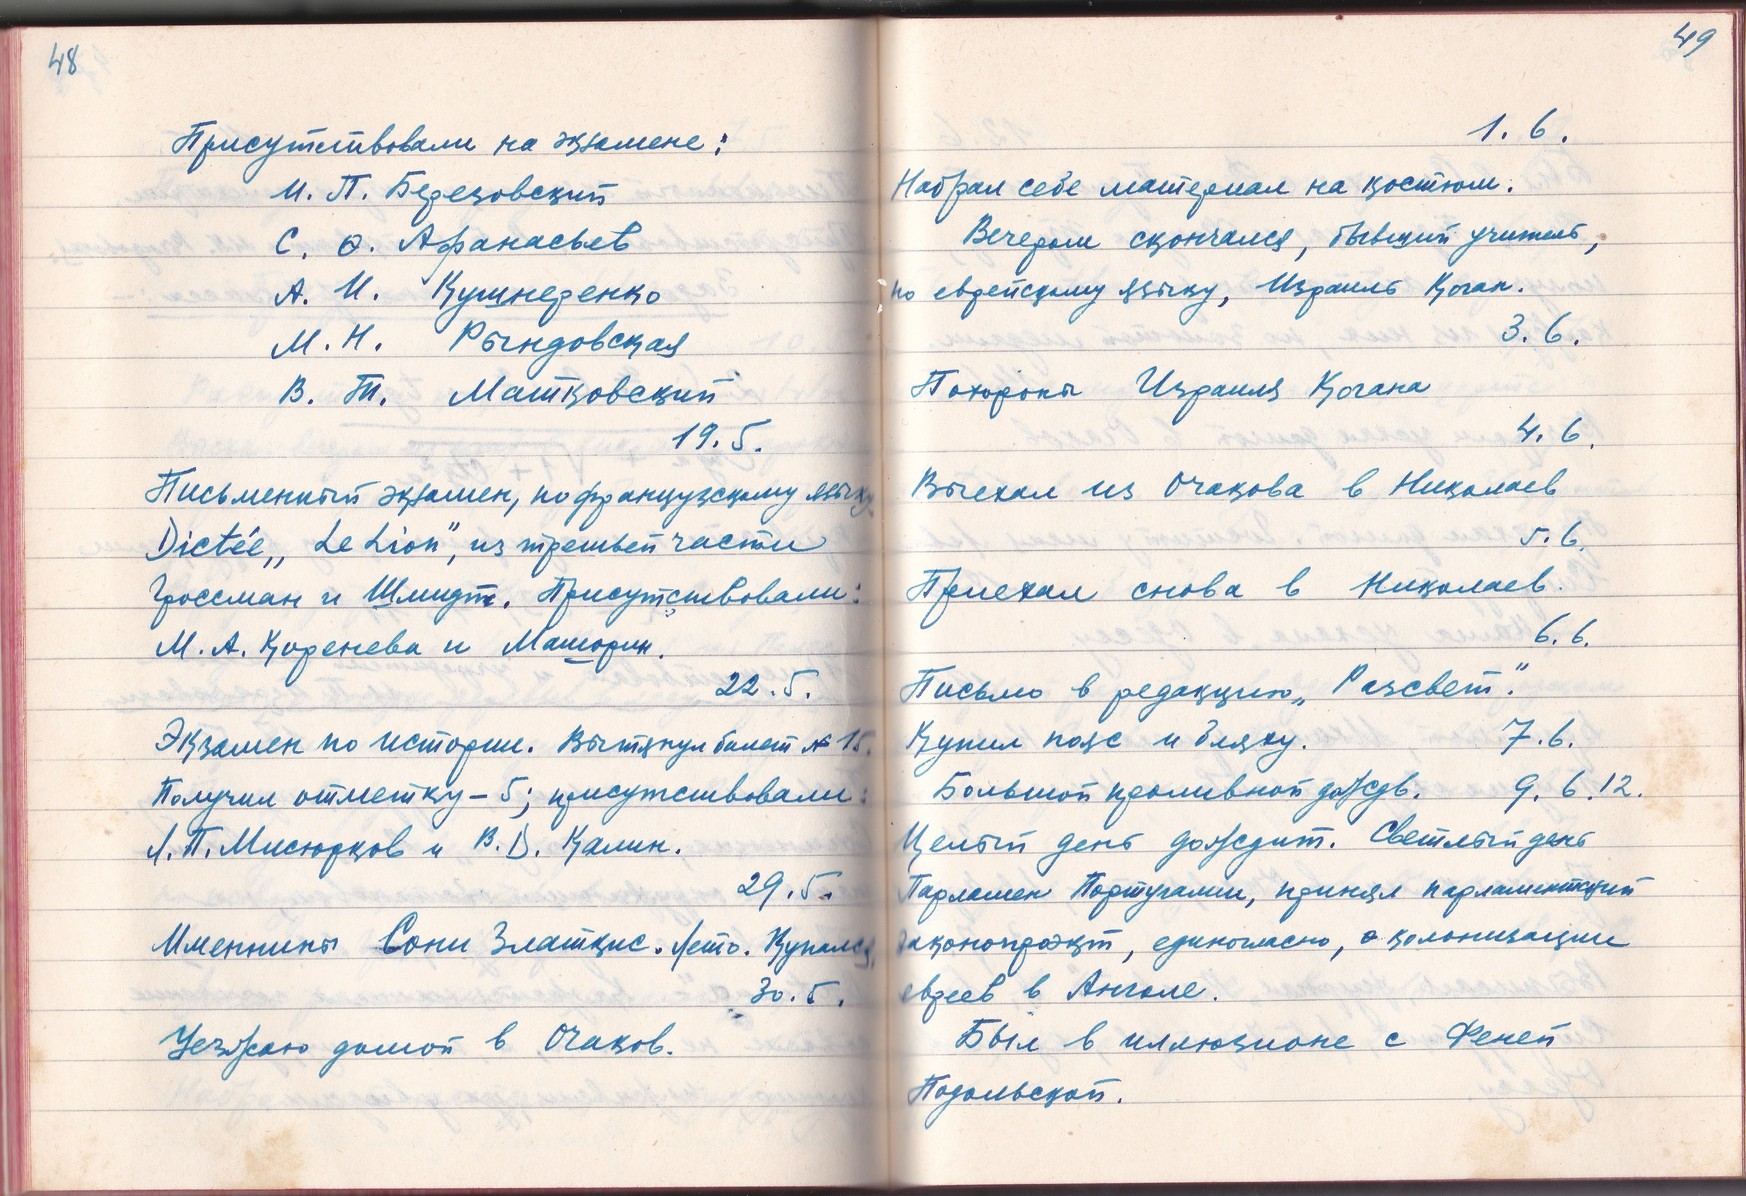 48
Присутствовали на экзамене:
И. П. Березовский
С. Ѳ. Афанасьев
А. И. Кушнеренко
М. Н. Рындовская
В. Т. Матковский
19.5.
Письменный экзамен, по французскому языку
Dictée „Le Lion", из третьей части
Гроссман и Шмидт. Присутствовали:
М. А. Коренева и Машорин.
22.5.
Экзамен по истории. Вытянул билет № 15.
Получил отметку – 5; присутствовали:
Л. П. Мисюрков и В. D. Калин.
29.5.
Именины Сони Златкис. Лето. Купался.
30.5.
Уезжаю домой в Очаков.
49
1. 6.
Набрал себе материал на костюм.
Вечером скончался, бывший учитель,
по еврейскому языку, Израиль Коган.
3. 6.
Похороны Израиля Когана
4. 6.
Выехал из Очакова в Николаев
5. 6.
Приехал снова в Николаев.
6. 6.
Письмо в редакцию „Разсвет".
Купил пояс и бляху. 7. 6.
Большой проливной дождь. 9. 6. 12.
Целый день дождит. Светлый день
Парламен Португалии, принял парламентский
законопроэкт, единогласно, о колонизации
евреев в Анголе.
Был в иллюзионе с Феней
Подольской.